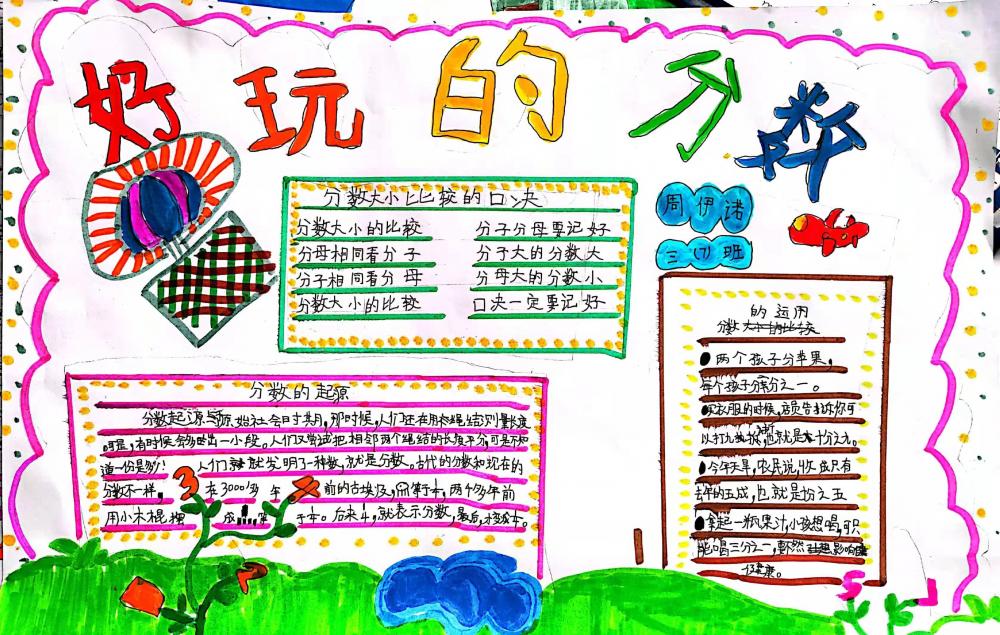 好玩的分数
分数大小比比较的口决
分数大小的比较
分子分母要记好
分母相同看分子
分子大的分数大
分子相同看分母
分母大的分数小
分数大小的比较
口决一定要记好
周伊诺
三(7)班
的运用
分数大小的比较
两个孩子分苹果,
每个孩子分之一。
衣服的时候,
以打九折,也就是十分之九。
今年天旱,农民说,收成只有
去年的五成,也就是十分之五
拿起一瓶果汁,小孩想喝,只
能喝三分之一,要不然影响
健康。
分数的起源
分数起源与原始社会时共月,那时候,人们还在用木绳结
可是,有时候会多出一小段。人们又尝试把相邻两个绳结的长度平分,可是不知
道一份是多少!人们就发明了一种数,就是分数。古代的分数和现在的
分数不一样。在3000多年前的古埃及,
用小木棍摆成
后来,就表示分数,最后,才变成